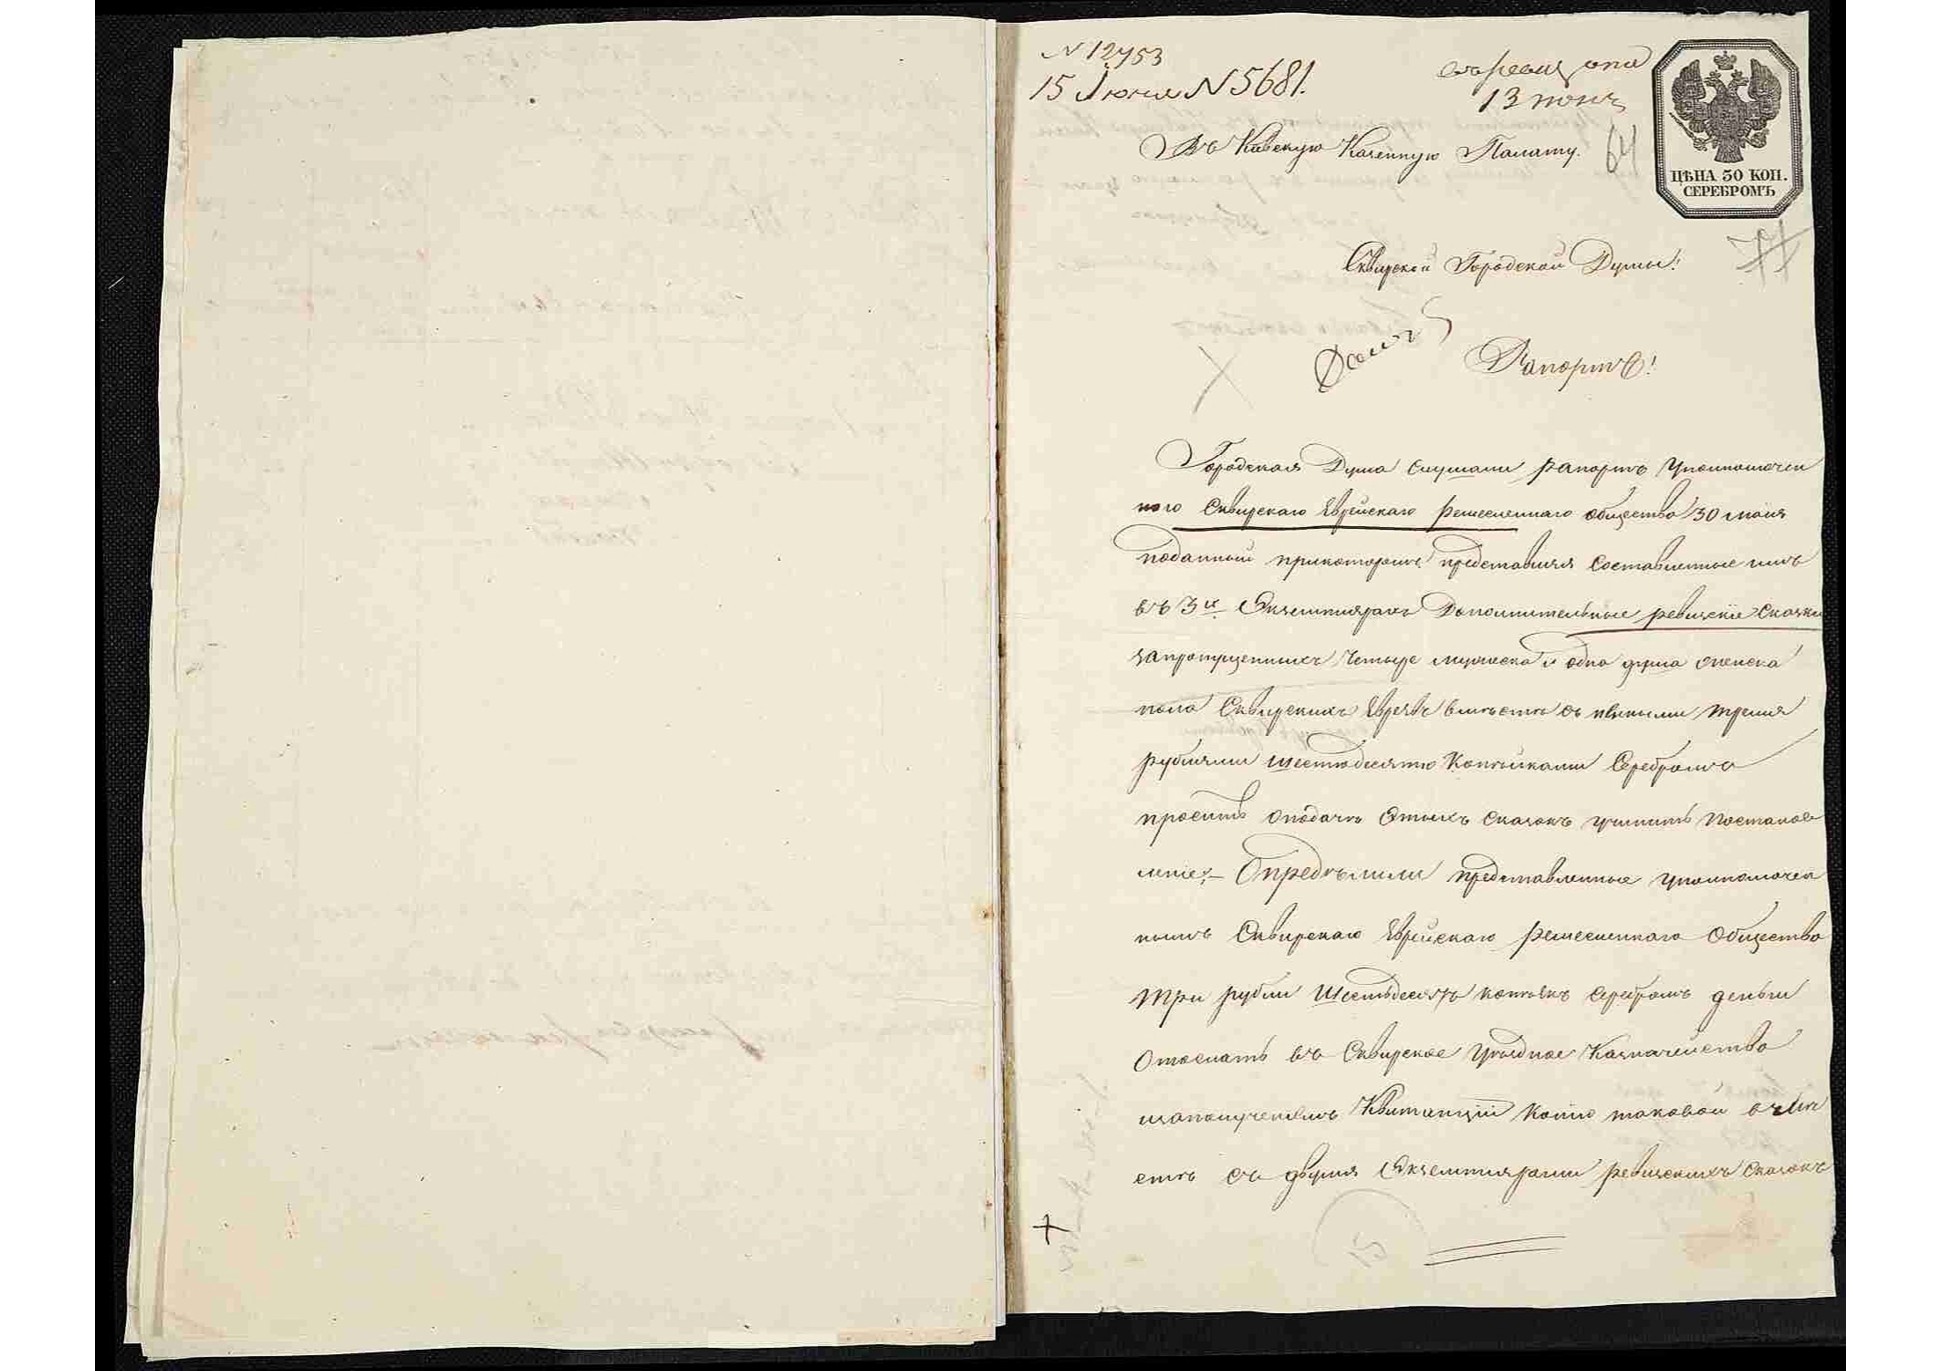 N 12453
15 Июня N 5681.
въ ревиз
13 июня
Въ Кіевскую Казенную Палату.
64
ЦѢНА 30 КОП.
СЕРЕБРОМЪ
Сквирской Городской Думы!
Рапортъ!
Городская Дума слушали рапортъ уполномочен
ного Сквирскаго Еврейскаго ремесленнаго общества 30 мая
поданный прикоторомъ представляя составленные имъ
въ 3х Экземплярахъ Дополнительные ревизкіе сказки
запропущенныхъ четыре мужеска и одна душа женска
пола Сквирскихъ Евреевъ вместе съ тремя
рублями шестюдесятю копѣйками Серебромъ
проситъ оподаче Этыхъ сказокъ учинить Постанов
леніе; – Опредѣлили представленные уполномочен
нымъ Сквирскаго Еврейскаго ремесленнаго Общества
три рубли шестьдесятъ копѣекъ серебромъ деньги
Отослать въ Сквирское Уѣздное Казначейство
изаполученіемъ Квитанціи копію таковой вмѣ
стѣ съ двумя Экземплярами ревизскихъ сказокъ